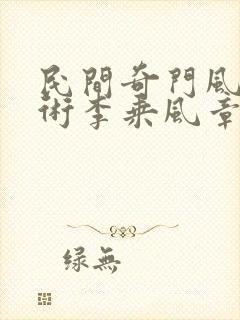 民間奇門風
術李乘風章
緑無